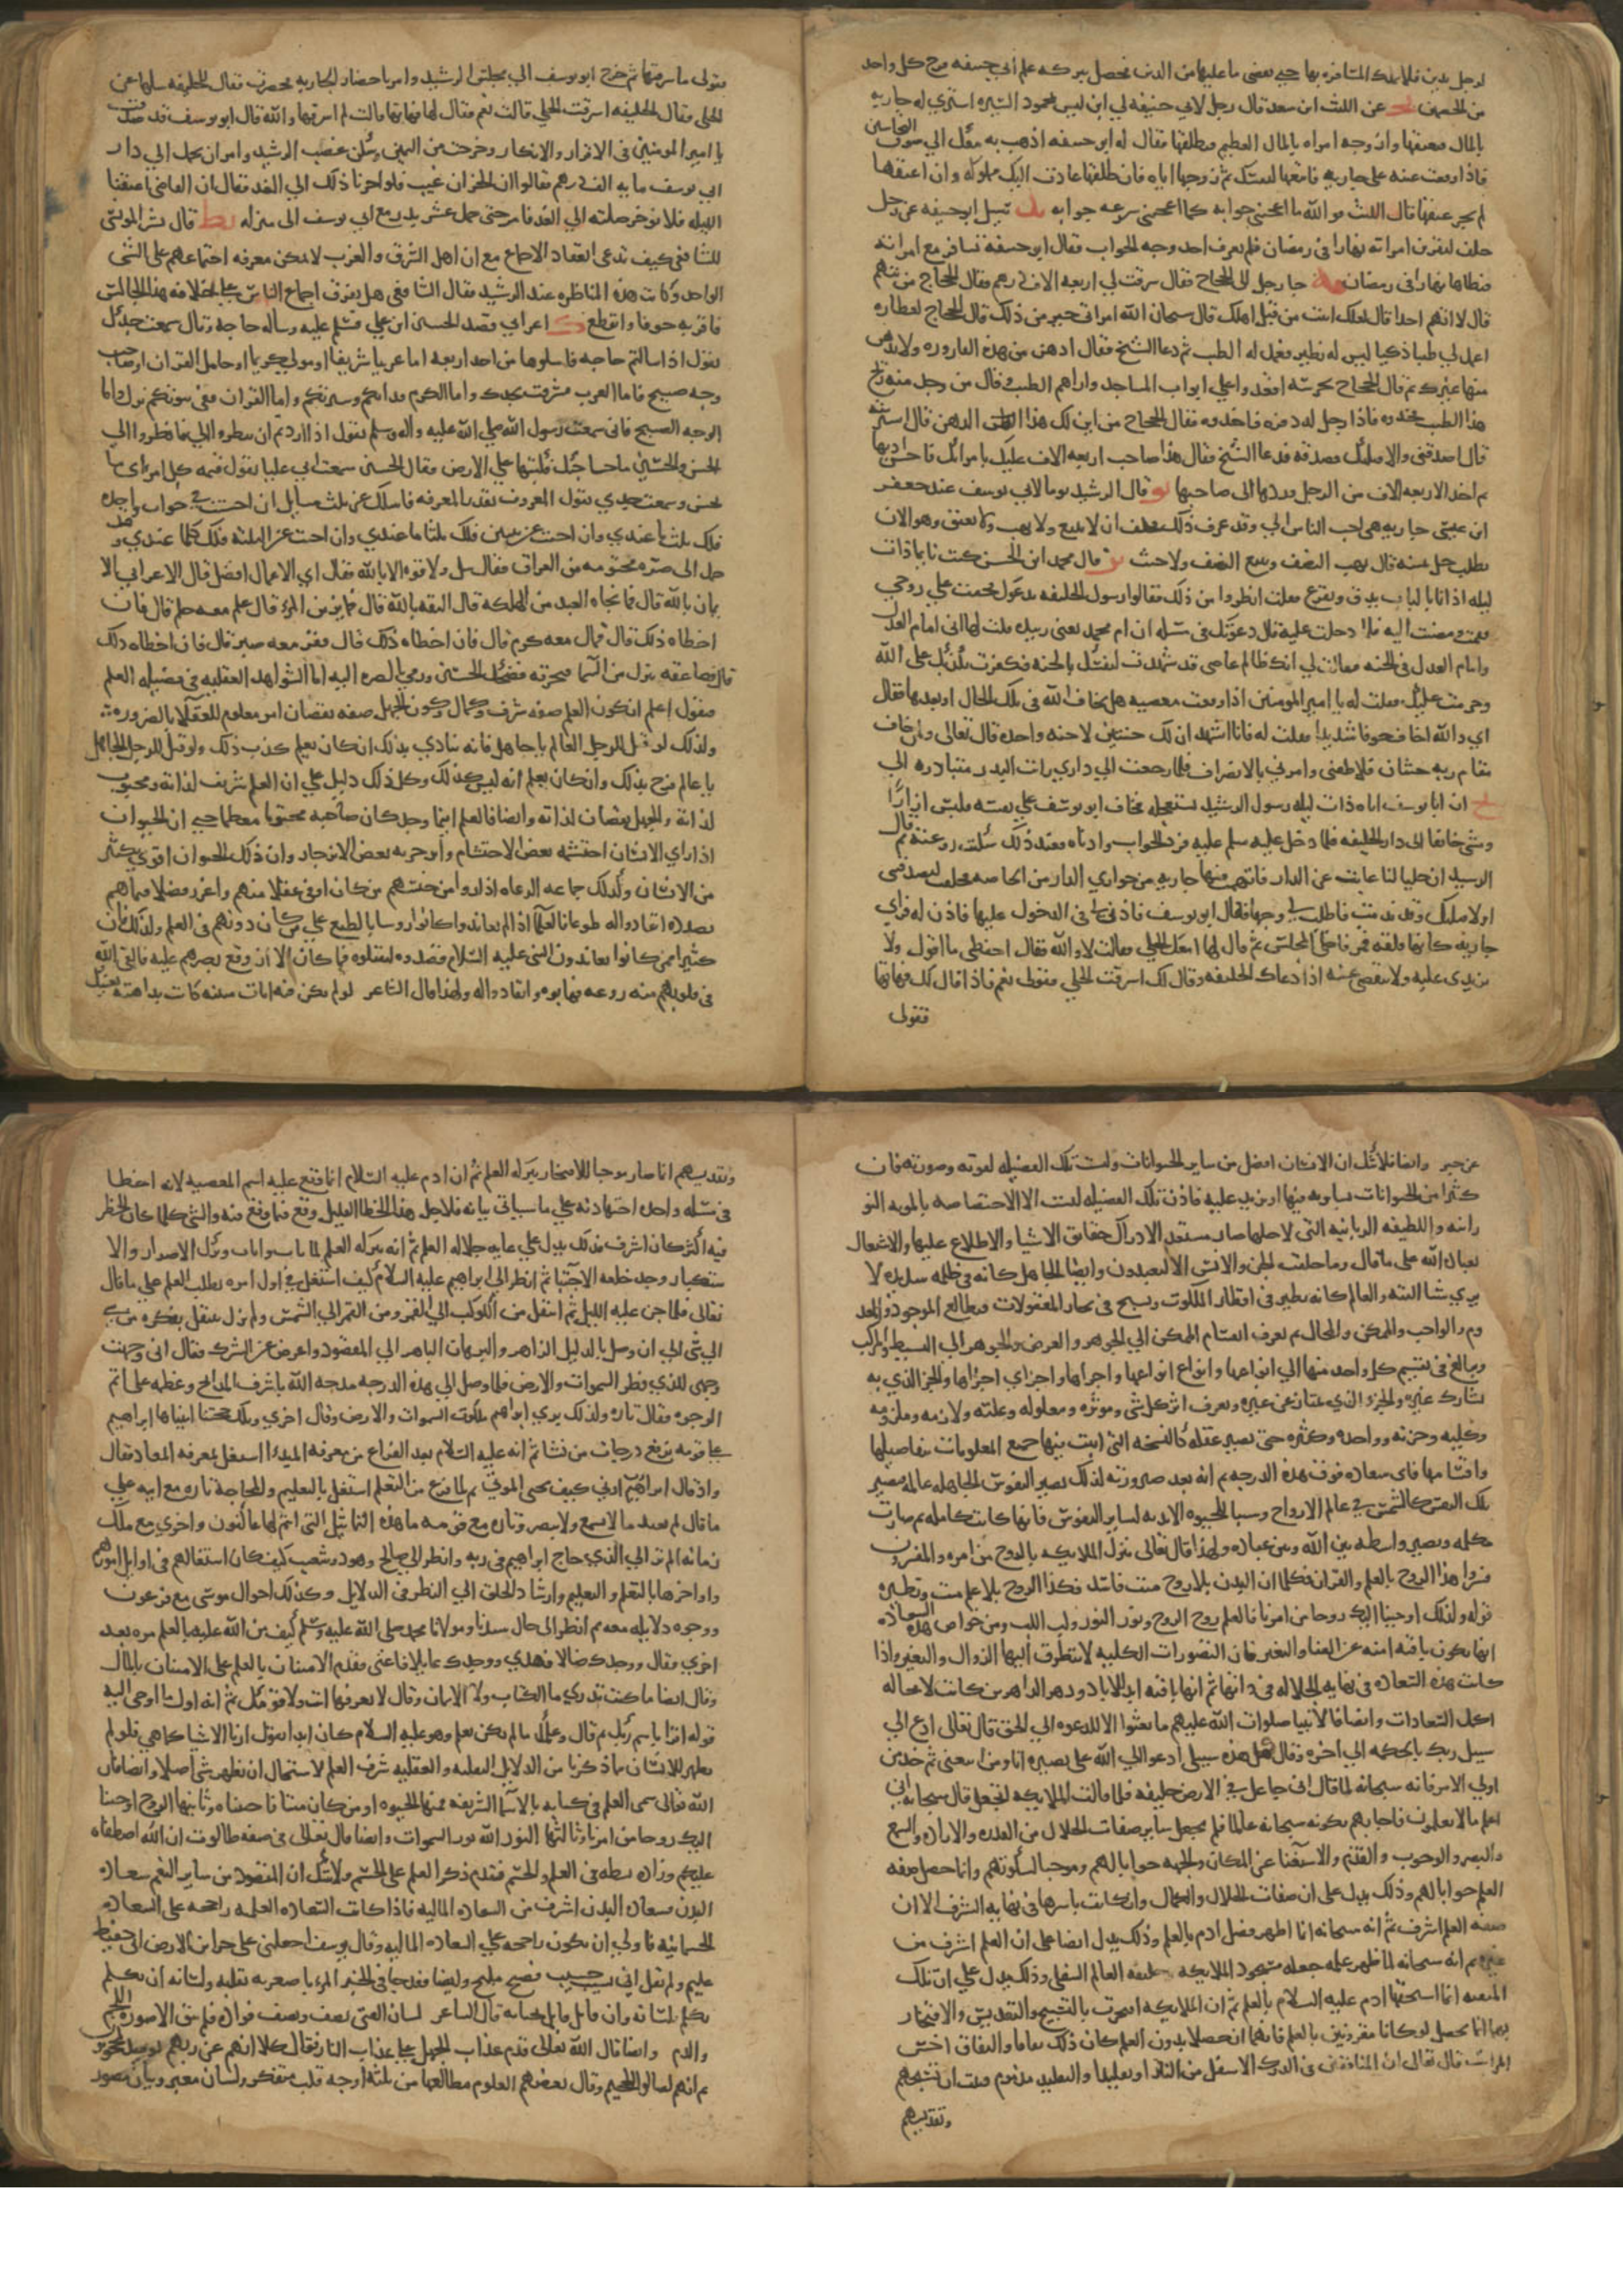 لرجل بدين فلا ملك المتافزه بها حتى يعضى ما عليها من الدين نحصل ببركه علم ابي حنيفه فرح كل واحد
من الخصمين عن الليث ابن سعد قال رجل لابي حنيفه لي ابن ليس بمحمود السيره اشتري له جاريه
بالمال فيعتقها وازوجه امراه بالمال العظيم فيطلقها فقال له ابو حنيفه اذهب به معك الي سوق النخاسين
فاذا وقعت عينه على جاريه فابتعها لنفسك ثم زوجها اياه فان طلقها عادت اليك مملوكه وان اعتقها
لم يجز عتقها قال الليث فو الله ما اعجبني جوابه كما اعجبني سرعه جوابه سئل ابو حنيفه عن رجل
حلف ليقربن امراته نهارا في رمضان فلم يعرف احد وجه الجواب فقال ابو حنيفه يسافر مع امراته
فيطاها نهارا في رمضان جا رجل الى الحجاج فقال سرقت لي اربعه الاف درهم فقال الحجاج من تتهم
قال لا اتهم احدا قال لعلك اتيت من قبل اهلك قال سبحان الله امراتي خير من ذلك قال الحجاج لعطاره
اعمل لي طيبا ذكيا ليس له نظير فعمل له الطيب ثم دعا الشيخ فقال ادهن من هذه القاروره ولا تدهن
منها غيرك ثم قال الحجاج لحرسه اقعدوا على ابواب المساجد واراهم الطيب وقال من وجد منه ريح
هذا الطيب فخذوه فاذا رجل له وفره فاخذوه فقال الحجاج من اين لك هذا الدهن قال اشتريته
قال اصدقني والا قتلتك فصدقه فدعا الشيخ فقال هذا صاحب اربعه الاف عليك بامراتك فاحسن ادبها
ثم اخذ الاربعه الاف من الرجل وردها الى صاحبها قال الرشيد يوما لابي يوسف عند جعفر
ابن عيسى جاريه هي احب الناس الي وقد عرف ذلك فحلف ان لا يبيع ولا يهب ولا يعتق وهو الان
يطلب حل يمينه قال يهب النصف ويبيع النصف ولا يحنث قال محمد ابن الحسن كنت نايما ذات
ليله اذا انا بالباب يدق ويقرع فقلت انظروا من ذلك فقالوا رسول الخليفه يدعوك فخفت على روحي
فقمت ومضيت اليه فلما دخلت عليه قال دعوتك في مسئله ان ام محمد يعني زبيده قلت لها اني امام العدل
وامام العدل في الجنه فقالت لي انك ظالم عاصي قد شهدت لنفسك بالجنه فكفرت بكذبك على الله
وحرمت عليك فقلت له يا امير المومنين اذا وقعت في معصيه هل تخاف الله في تلك الحال او بعدها فقال
اي والله اخاف خوفا شديدا فقلت له فانا اشهد ان لك جنتين لا جنه واحده قال تعالى ولمن خاف
مقام ربه جنتان فلاطفني وامرني بالانصراف فلما رجعت الي داري رايت البدر متبادره الي
ان ابا يوسف اتاه ذات ليله رسول الرشيد يستعجله فخاف ابو يوسف على نفسه فلبس ازاره
ومشى خائفا الى دار الخليفه فلما دخل عليه سلم عليه فرد الجواب وادناه فعند ذلك سكنت روعته ثم قال
الرشيد ان حليا لنا غابت عن الدار فاتهمت فيها جاريه من جواري الدار من الخاصه فحلفت لتصدقني
او لاقتلنك وقد ندمت فاطلب لي وجها فقال ابو يوسف فاذن لي في الدخول عليها فاذن له فراي
جاريه كانها فلقه قمر فاخلى المجلس ثم قال لها امعك الحلي فقالت لا والله فقال احفظي ما اقول ولا
تزيدي عليه ولا تنقصي عنه اذا دعاك الخليفه وقال لك اسرقت الحلي فقولي نعم فاذا قال لك فهاتها
فقولي
فقولي ما سرقتها ثم خرج ابو يوسف الي مجلس الرشيد وامر باحضار الجاريه فحضرت فقال للخليفه سلها عن
الحلي فقال الخليفه اسرقت الحلي قالت نعم فقال لها فهاتها قالت لم اسرقها والله قال ابو يوسف قد صدقت
يا امير المومنين في الاقرار والانكار وخرجت من اليمين وسكن غضب الرشيد وامر ان يحمل الي دار
ابي يوسف مايه الف درهم فقالوا ان الخزان غيب فلو اخرنا ذلك الي الغد فقال ان القاضي اعتقنا
الليله فلا نوخر صلته الي الغد فامر حتى حمل عشر بدر مع ابي يوسف الى منزله قال بشر المريسي
للشافعي كيف تدعي انعقاد الاجماع مع ان اهل الشرق والغرب لا يمكن معرفه اجتماعهم على الشي
الواحد وكانت هذه المناظره عند الرشيد فقال الشافعي هل تعرف اجماع الناس على خلافه هذا الجالس
فاقر به خوفا وانقطع اعرابي قصد الحسين ابن علي فسلم عليه وساله حاجه وقال سمعت جدك
يقول اذا سالتم حاجه فاسلوها من احد اربعه اما عربيا شريفا او مولى كريما او حامل القران او صاحب
وجه صبيح فاما العرب فشرفت بجدك واما الكرم فدابكم وسيرتكم واما القران ففي بيوتكم نزل واما
الوجه الصبيح فاني سمعت رسول الله صلى الله عليه واله وسلم يقول اذا اردتم ان تنظروا الي فانظروا الي
الحسن والحسين ما حاجتك فكتبها على الارض فقال الحسين سمعت ابي عليا يقول قيمه كل امرئ ما
يحسن وسمعت جدي يقول المعروف بقدر المعرفه فاسلك عن ثلث مسايل ان احسنت في جواب واحده
فلك ثلث ما عندي وان اجبت عن اثنين فلك ثلثا ما عندي وان اجبت عن الثلثه فلك كلما عندي وقد
حمل الى صره مختومه من العراق فقال سل ولا قوه الا بالله فقال اي الاعمال افضل قال الاعرابي الا
يمان بالله قال فما نجاه العبد من الهلكه قال الثقه بالله قال فما يزين المرء قال علم معه حلم قال فان
اخطاه ذلك قال فمال معه كرم قال فان اخطاه ذلك قال ففقر معه صبر قال فان اخطاه ذلك
قال فصاعقه تنزل من السما فتحرقه فضحك الحسين ورمى بالصره اليه اما الشواهد العقليه في فضيله العلم
فنقول اعلم ان كون العلم صفه شرف وكمال وكون الجهل صفه نقصان امر معلوم للعقلا بالضروره
ولذلك لو قيل للرجل العالم يا جاهل فانه يتاذي بذلك ان كان يعلم كذب ذلك ولو قيل للرجل الجاهل
يا عالم فرح بذلك وان كان يعلم انه ليس كذلك وكل ذلك دليل على ان العلم شريف لذاته ومحبوب
لذاته والجهل نقصان لذاته وايضا فالعلم اينما وجد كان صاحبه محترما معظما حتى ان الحيوان
اذا راي الانسان احتشمه بعض الاحتشام وانزجر به بعض الانزجار وان كان ذلك الحيوان اقوي بكثير
من الانسان وكذلك جماعه الرعاه اذا راوا من جنسهم من كان اوفى عقلا منهم واغزر فضلا فيما هم
بصدده انقادوا له طوعا فالعلما اذا لم يعاندوا كانوا روسا بالطبع على من كان دونهم في العلم ولذلك فان
كثيرا ممن كانوا يعاندون النبي عليه السلام قصدوه ليقتلوه فما كان الا ان وقع بصرهم عليه فالقى الله
في قلوبهم منه روعه فهابوه وانقادوا له ولهذا قال الشاعر لو لم تكن فيه ايات مبينه كانت بداهته تغنيك
عن خبر وايضا فلا شك ان الانسان افضل من ساير الحيوانات وليست تلك الفضيله لقوته وصورته فان
كثيرا من الحيوانات تساويه فيها او تزيد عليه فاذن تلك الفضيله ليست الا لاختصاصه بالمزيه النو
رانيه واللطيفه الربانيه التي لاجلها صار مستعدا لادراك حقائق الاشيا والاطلاع عليها والاشتغال
بعباده الله على ما قال وما خلقت الجن والانس الا ليعبدون وايضا الجاهل كانه في ظلمه شديده لا
يري شيا البته والعالم كانه يطير في اقطار الملكوت ويسبح في بحار المعقولات فيطالع الموجود والمعد
وم والواجب والممكن والمحال ثم يعرف انقسام الممكن الي الجوهر والعرض والجوهر الي البسيط والمركب
ويبالغ في تقسيم كل واحد منها الي انواعها وانواع انواعها واجزاها واجزاي اجزاها والجز الذي به
تشارك غيره والجزء الذي يمتاز عن غيره ويعرف اثر كل شي وموثره ومعلوله وعلته ولازمه وملزومه
وكليه وجزئه وواحده وكثيره حتى يصير عقله كالنسخه التي اثبت فيها جميع المعلومات بتفاصيلها
واقسامها فاي سعاده فوق هذه الدرجه ثم انه بعد صيرورته لذلك يصير النفوس الجاهله عالمه فيصير
تلك النفس كالشمس في عالم الارواح وسببا للحيوه الابديه لساير النفوس فانها كانت كامله ثم صارت
مكمله وتصير واسطه بين الله وبين عباده ولهذا قال تعالى ينزل الملايكه بالروح من امره والمفسرون
فسروا هذا الروح بالعلم والقران فكما ان البدن بلا روح ميت فاسد فكذا الروح بلا علم ميت ونظيره
قوله ولذلك اوحينا اليك روحا من امرنا فالعلم روح الروح ونور النور ولب اللب ومن خواص هذه السعاده
انها تكون باقيه امنه عن الفنا والتغير فان التصورات الكليه لا يتطرق اليها الزوال والتغير واذا
كانت هذه السعاده في نهايه الجلاله في ذاتها ثم انها باقيه ابد الاباد ودهر الداهرين كانت لا محاله
اكمل السعادات وايضا فالانبيا صلوات الله عليهم ما بعثوا الا للدعوه الي الحق قال تعالى ادع الي
سبيل ربك بالحكمه الي اخره وقال قل هذه سبيلي ادعوا الي الله على بصيره انا ومن اتبعني ثم خذ من
اول الامر فانه سبحانه لما قال اني جاعل في الارض خليفه فلما قالت الملايكه اتجعل قال سبحانه اني
اعلم ما لا تعلمون فاجابهم بكونه سبحانه عالما فلم يجعل ساير صفات الجلال من القدره والاراده والسمع
والبصر والوجوب والقدم والاستغنا عن المكان والجهه جوابا لهم وموجبا لسكوتهم وانما جعل صفه
العلم جوابا لهم وذلك يدل على ان صفات الجلال والكمال وان كانت باسرها في نهايه الشرف الا ان
صفه العلم اشرف ثم انه سبحانه انما اظهر فضل ادم بالعلم وذلك يدل ايضا على ان العلم اشرف من
غيره ثم انه سبحانه لما ظهر علمه جعله مسجود الملايكه خليفه العالم السفلي وذلك يدل على ان تلك
المنقبه انما استحقها ادم عليه السلام بالعلم ثم ان الملايكه افتخرت بالتسبيح والتقديس والافتخار
بهما انما يحصل لو كانا مقرونين بالعلم فانهما ان حصلا بدون العلم كان ذلك نفاقا والنفاق اخس
المراتب قال تعالى ان المنافقين في الدرك الاسفل من النار او تقليدا والتقليد مذموم فثبت ان تسبيحهم
وتقديسهم
وتقديسهم انما صار موجبا للافتخار ببركه العلم ثم ان ادم عليه السلام انما وقع عليه اسم المعصيه لانه اخطا
في مسئله واحده اجتهاديه على ما سياتي بيانه فلاجل هذا الخطا القليل وقع فيما وقع فيه والشي كلما كان الخطر
فيه اكثر كان اشرف فذلك يدل على غايه جلاله العلم ثم انه ببركه العلم لما تاب واناب وترك الاصرار والا
ستكبار وجد خلعه الاجتبا ثم انظر الي ابراهيم عليه السلام كيف اشتغل في اول امره بطلب العلم على ما قال
تعالى فلما جن عليه الليل ثم انتقل من الكوكب الي القمر ومن القمر الي الشمس ولم يزل ينتقل بفكره من شي
الي شي الي ان وصل بالدليل الزاهر والبرهان الباهر الي المقصود واعرض عن الشرك فقال اني وجهت
وجهي للذي فطر السموات والارض فلما وصل الي هذه الدرجه مدحه الله باشرف المدائح وعظمه على اتم
الوجوه فقال تاره ولذلك نري ابراهيم ملكوت السموات والارض وقال اخري وتلك حجتنا اتيناها ابراهيم
على قومه نرفع درجات من نشا ثم انه عليه السلام بعد الفراغ من معرفه المبدا اشتغل بمعرفه المعاد فقال
واذ قال ابراهيم ارني كيف تحيي الموتى ثم لما فرغ من التعلم اشتغل بالتعليم والمحاجه تاره مع ابيه على
ما قال لم تعبد ما لا يسمع ولا يبصر وتاره مع قومه ما هذه التماثيل التي انتم لها عاكفون واخري مع ملك
زمانه الم تر الي الذي حاج ابراهيم في ربه وانظر الي صالح وهود وشعيب كيف كان اشتغالهم في اوايل امورهم
واواخرها بالتعلم والتعليم وارشاد الخلق الي النظر في الدلايل وكذلك احوال موسى مع فرعون
ووجوه دلايله معه ثم انظر الى حال سيدنا ومولانا محمد صلى الله عليه وسلم كيف من الله عليه بالعلم مره بعد
اخري فقال ووجدك ضالا فهدي ووجدك عايلا فاغنى فقدم الامتنان بالعلم على الامتنان بالمال
وقال ايضا ما كنت تدري ما الكتاب ولا الايمان وقال لا تعرفها انت ولا قومك ثم انه اول ما اوحي اليه
قوله اقرا باسم ربك ثم قال وعلمك ما لم تكن تعلم وهو عليه السلام كان ابدا يقول ارنا الاشيا كما هي فلو لم
يظهر للانسان ما ذكرنا من الدلايل النقليه والعقليه شرف العلم لاستحال ان يظهر شي اصلا وايضا فان
الله تعالى سمى العلم في كتابه بالاسما الشريفه فمنها الحيوه اومن كان ميتا فاحييناه وثانيها الروح اوحينا
اليك روحا من امرنا وثالثها النور الله نور السموات وايضا قال تعالى في صفه طالوت ان الله اصطفاه
عليكم وزاده بسطه في العلم والجسم فقدم ذكر العلم على الجسم ولا شك ان المقصود من ساير النعم سعاده
البدن فسعاده البدن اشرف من السعاده الماليه فاذا كانت السعاده العلميه راجحه على السعاده
الجسمانيه فاولي ان تكون راجحه على السعاده الماليه وقال يوسف اجعلني على خزائن الارض اني حفيظ
عليم ولم يقل اني حسيب نسيب فصيح مليح وايضا فقد جا في الخبر المرء باصغريه بقلبه ولسانه ان تكلم
تكلم بلسانه وان قاتل قاتل بجنانه قال الشاعر لسان الفتى نصف ونصف فواده فلم يبق الا صوره اللحم
والدم وايضا قال الله تعالى قدم عذاب الجهل على عذاب النار فقال كلا انهم عن ربهم يومئذ لمحجوبون
ثم انهم لصالوا الجحيم وقال بعضهم العلوم مطالعها من ثلثه اوجه قلب متفكر ولسان معبر وبيان مصور